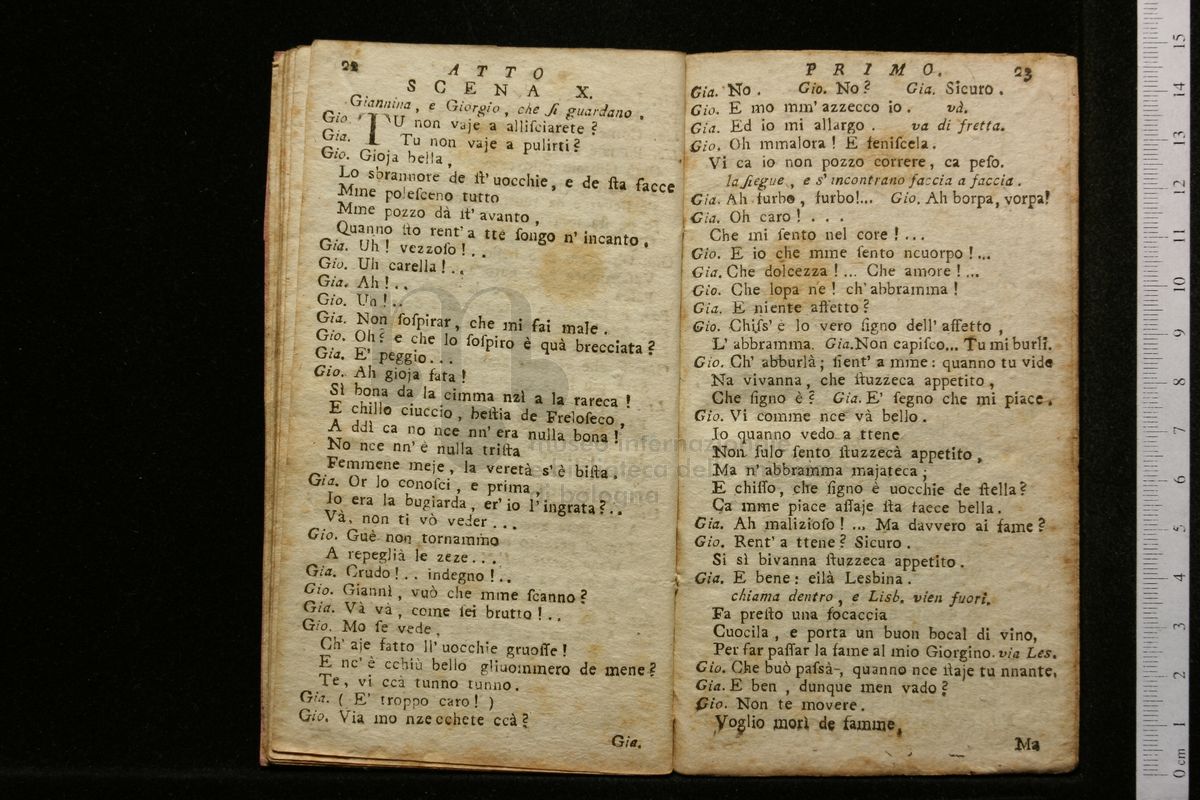 22
ATTO
SCENA X.
Giannina, e Giorgio, che ſi guardano.
Gio. TU non vaje a alliſciarete?
Gia. Tu non vaje a pulirti?
Gio. Gioja bella,
Lo sbrannore de ſt'uocchie, e de ſta facce
Mme poleſceno tutto
Mme pozzo dà ſt'avanto,
Quanno ſto rent'a tte ſongo n'incanto.
Gia. Uh! vezzoſo!..
Gio. Uh carella!..
Gia. Ah!..
Gio. Un!..
Gia. Non ſoſpirar, che mi fai male.
Gio. Oh? e che lo ſoſpiro è quà brecciata?
Gia. E' peggio...
Gio. Ah gioja fata!
Sì bona da la cimma nzì a la rareca!
E chillo ciuccio, beſtia de Freloſeco,
A ddì ca no nce nn'era nulla bona!
No nce nn'è nulla triſta
Femmene meje, la veretà s'è biſta.
Gia. Or lo conoſci, e prima,
Io era la bugiarda, er'io l'ingrata?..
Và, non ti vò veder...
Gio. Guè non tornammo
A repeglià le zeze...
Gia. Crudo!.. indegno!..
Gio. Giannì, vuò che mme ſcanno?
Gia. Và và, come ſei brutto!..
Gio. Mo ſe vede,
Ch'aje fatto ll'uocchie gruoſſe!
E nc'è cchiù bello gliuommero de mene?
Te, vi ccà tunno tunno.
Gia. (E' troppo caro!)
Gio. Via mo nzecchete ccà?
Gia.
PRIMO.
23
Gia. No. Gio. No? Gia. Sicuro.
Gio. E mo mm'azzecco io. và.
Gia. Ed io mi allargo. va di fretta.
Gio. Oh mmalora! E feniſcela.
Vi ca io non pozzo correre, ca peſo.
la ſiegue, e s'incontrano faccia a faccia.
Gia. Ah furbo, furbo!... Gio. Ah borpa, vorpa!
Gia. Oh caro!...
Che mi ſento nel core!...
Gio. E io che mme ſento ncuorpo!...
Gia. Che dolcezza!... Che amore!...
Gio. Che lopa ne! ch'abbramma!
Gia. E niente affetto?
Gio. Chiſs'è lo vero ſigno dell'affetto,
L'abbramma. Gia. Non capiſco... Tu mi burli.
Gio. Ch'abburlà; ſient'a mme: quanno tu vide
Na vivanna, che ſtuzzeca appetito,
Che ſigno è? Gia. E' ſegno che mi piace.
Gio. Vi comme nce và bello.
Io quanno vedo a ttene
Non ſulo ſento ſtuzzecà appetito,
Ma n'abbramma majateca;
E chiſſo, che ſigno è uocchie de ſtella?
Ca mme piace aſſaje ſta facce bella.
Gia. Ah malizioſo!... Ma davvero ai fame?
Gio. Rent'a ttene? Sicuro.
Si sì bivanna ſtuzzeca appetito.
Gia. E bene: eilà Lesbina.
chiama dentro, e Lisb. vien fuori.
Fa preſto una focaccia
Cuocila, e porta un buon bocal di vino,
Per far paſſar la fame al mio Giorgino. via Les.
Gio. Che buò paſsà, quanno nce ſtaje tu nnante.
Gia. E ben, dunque men vado?
Gio. Non te movere.
Voglio morì de famme,
Ma
museo internazionale
e biblioteca della
di bologna
0 cm 1 2 3 4 5 6 7 8 9 10 11 12 13 14 15